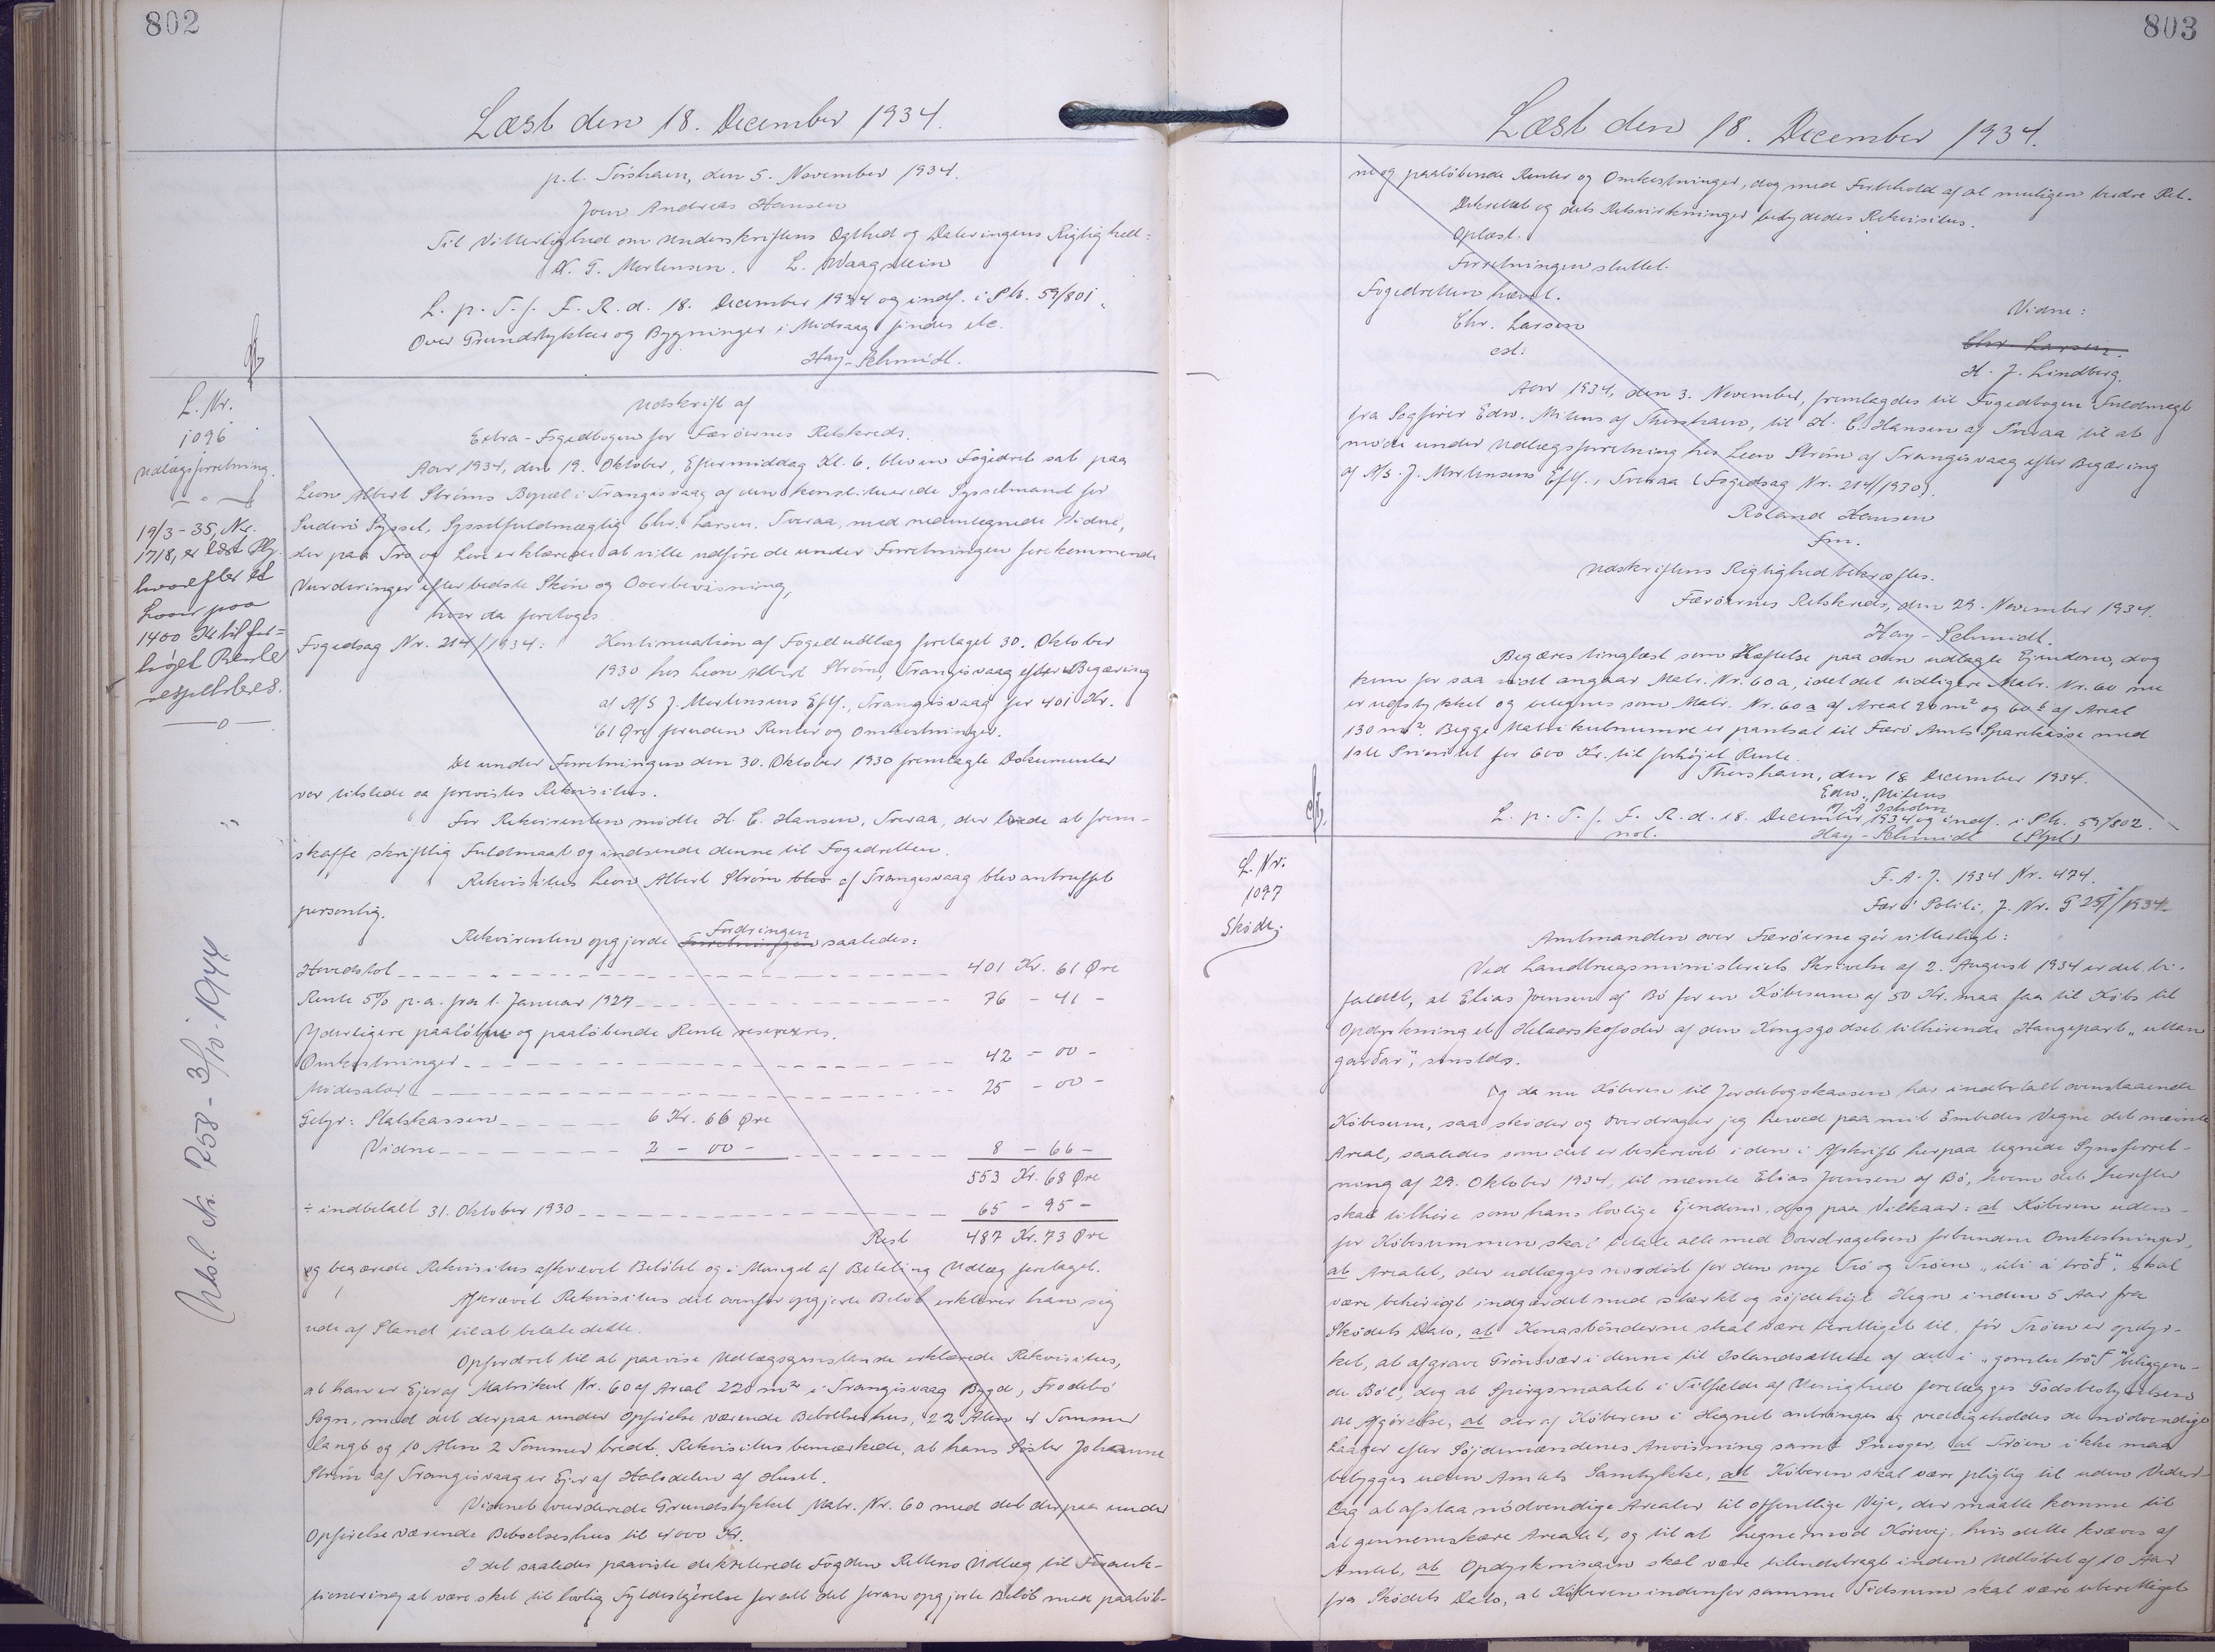 802
Læst den 18. December 1934.
p.t. Torshavn, den 5. November 1934.
Joen Andreas Hansen
Til Vitterlighed om Underskriftens Ægthed og Dateringens Rigtighed:
N. T. Mortensen. L. Waagstein
L. p. T. f. F. R. d. 18. December 1934 og indf. i Pk. 59/801.
Over Grundstykker og Bygninger i Midvaag findes etc.
Hay-Schmidt.
L. Nr.
1096
Udlægsforretning.
19/3-35, Nr.
1718, er læst Plg.
hvorefter et
Laan paa
1400 Kr til for=
højet Rente
respekteres.
Udsl. Nr. 758 - 3/10-1944
Udskrift af
Extra-Fogedbogen for Færøernes Retskreds.
Aar 1934, den 19. Oktober, Eftermiddag Kl. 6. blev en Fogedret sat paa
Leon Albert Strøms Bopæl i Trangisvaag af den konstituerede Sysselmand for
Suderø Syssel, Sysselfuldmægtig Chr. Larsen. Tveraa, med nedentegnede Vidne,
der paa Tro og Love erklærede at ville udføre de under Forretningen forekommende
Vurderinger efter bedste Skøn og Overbevisning,
hvor da foretoges
Fogedsag Nr. 214/1934: Kontinuation af Fogedudlæg foretaget 30. Oktober
1930 hos Leon Albert Strøm, Trangisvaag efter Begæring
af A/S J. Mortensens Eftf., Trangisvaag for 401 Kr.
61 Øre foruden Renter og Omkostninger.
De under Forretningen den 30. Oktober 1930 fremlagte Dokumenter
var tilstede og forevistes Rekvisitus.
For Rekvirenten mødte H. C. Hansen, Tveraa, der lovede at frem-
skaffe skriftlig Fuldmagt og indsende denne til Fogedretten.
Rekvisitus Leon Albert Strøm blev af Trangisvaag blev antruffet
personlig.
Rekvirenten opgjorde Forretningen Fordringen saaledes:
Hovedstol 401 Kr. 61 Øre
Rente 5% p.a. fra 1. Januar 1927 76 - 41 -
Yderligere paaløbne og paaløbende Rente reserveres.
Omkostninger 42 - 00 -
Mødesalær 25 - 00 -
Gebyr: Statskassen 6 Kr. 66 Øre
Vidne 2 - 00 - 8 - 66 -
553 Kr. 68 Øre
÷ indbetalt 31. Oktober 1930 65 - 95 -
Rest 487 Kr. 73 Øre
og begærede Rekvisitus afkrævet Beløbet og i Mangel af Betaling Udlæg foretaget.
Afkrævet Rekvisitus det ovenfor opgjorte Beløb erklærer han sig
ude af Stand til at betale dette.
Opfordret til at paavise Udlægsgenstande erklærede Rekvisitus,
at han er Ejer af Matrikel Nr. 60 af Areal 220 m² i Trangisvaag Bygd, Frodebø
Sogn, med det derpaa under Opførelse værende Beboelseshus, 22 Alen 4 Tommer
langt og 10 Alen 2 Tommer bredt. Rekvisitus bemærkede, at hans Søster Johanne
Strøm af Trangisvaag er Ejer af Halvdelen af Huset.
Vidnet vurderede Grundstykket Matr. Nr. 60 med det derpaa under
Opførelse værende Beboelseshus til 4000 Kr.
I det saaledes paaviste dekreterede Fogden Rettens Udlæg til
tionering at være sket til lovlig Fyldestgørelse for alt det foran opgjorte Beløb med paaløb-
803
Læst den 18. December 1934.
ne og paaløbende Renter og Omkostninger, dog med Forbehold af al muligen bedre Ret.
Dekretet og dets Retsvirkninger betydedes Rekvisitus.
Oplæst.
Forretningen sluttet.
Fogedretten hævet.
Chr. Larsen
cst:
Vidne:
Chr. Larsen.
H. J. Lindberg.
Aar 1934, den 3. November, fremlægdes til Fogedbogen Fuldmagt
fra Sagfører Edw. Mitens af Thorshavn, til H. C. Hansen af Tveraa til at
møde under Udlægsforretning hos Leon Strøm af Trangisvaag efter Begæring
af A/S. J. Mortensens Eftf., Tveraa (Fogedsag Nr. 214/1930).
Roland Hansen
fm.
Udskriftens Rigtighed bekræftes.
Færøernes Retskreds, den 29. November 1934.
Hay-Schmidt.
Begæres tinglæst som Hæftelse paa den udlagte Ejendom, dog
kun for saa vidt angaar Matr. Nr. 60 a, idet det tidligere Matr. Nr. 60 nu
er udstykket og betegnes som Matr. Nr. 60 a af Areal 90 m² og 60 b af Areal
130 m². Begge Matrikulnumre er pantsat til Færø Amts Sparekasse med
1ste Prioritet for 600 Kr. til forhøjet Rente.
Thorshavn, den 18 December 1934.
Edw. Mitens
L. p. T. f. F. R. d. 18. December 1934 og indf. i Pk. 59/802.
not. Hay-Schmidt
L. Nr.
1097
Skøde.
F. A. J. 1934 Nr. 474.
Færø Politi, J. Nr. G 251/1934.
Amtmanden over Færøerne gør vitterligt:
Ved Landbrugsministeriets Skrivelse af 2. August 1934 er det bi-
faldet, at Elias Joensen af Bø for en Købesum af 50 Kr. maa faa til Købs til
Opdyrkning et Helaarskofoder af den Kongsgodset tilhørende Haugepart „uttan
garðar", sønstds.
Og da nu Køberen til Jordebogskassen har indbetalt ovenstaaende
Købesum, saa skøder og overdrager jeg herved paa mit Embedes Vegne det nævnte
Areal, saaledes som det er beskrevet i den i Afskrift herpaa tegnede Synsforret-
ning af 29. Oktober 1934, til nævnte Elias Joensen af Bø, hvem det herefter
skal tilhøre som hans lovlige Ejendom, dog paa Vilkaar: at Køberen uden-
for Købesummen skal betale alle med Overdragelsen forbundne Omkostninger,
at Arealet, der udlægges nordøst for den nye Trø og Trøen „úti á trøð", skal
være behørigt indgærdet med stærkt og søjdeligt Hegn inden 5 Aar fra
Skødets Dato, at Kongsbønderne skal være berettiget til, før Trøen er opdyr-
ket, at afgrave Grønsvær i denne til Istandsættelse af det i „gomlu trøð" liggen-
de Bøl, dog at Spørgsmaalet i Tilfælde af Uenighed forelægges Godsbestyrelsen
til Afgørelse, at der af Køberen i Hegnet anbringes og vedligeholdes de nødvendige
Laager efter Søjdemændenes Anvisning samt Smoger, at Trøen ikke maa
bebygges uden Amtets Samtykke, at Køberen skal være pligtig til uden Veder-
lag at afstaa nødvendige Arealer til offentlige Veje, der maatte komme til
at gennemskære Arealet, og til at hegne mod Kørevej, hvis dette kræves af
Amtet, at Opdyrkningen skal være tilendebragt inden Udløbet af 10 Aar
fra Skødets Dato, at Køberen indenfor samme Tidsrum skal være uberettiget